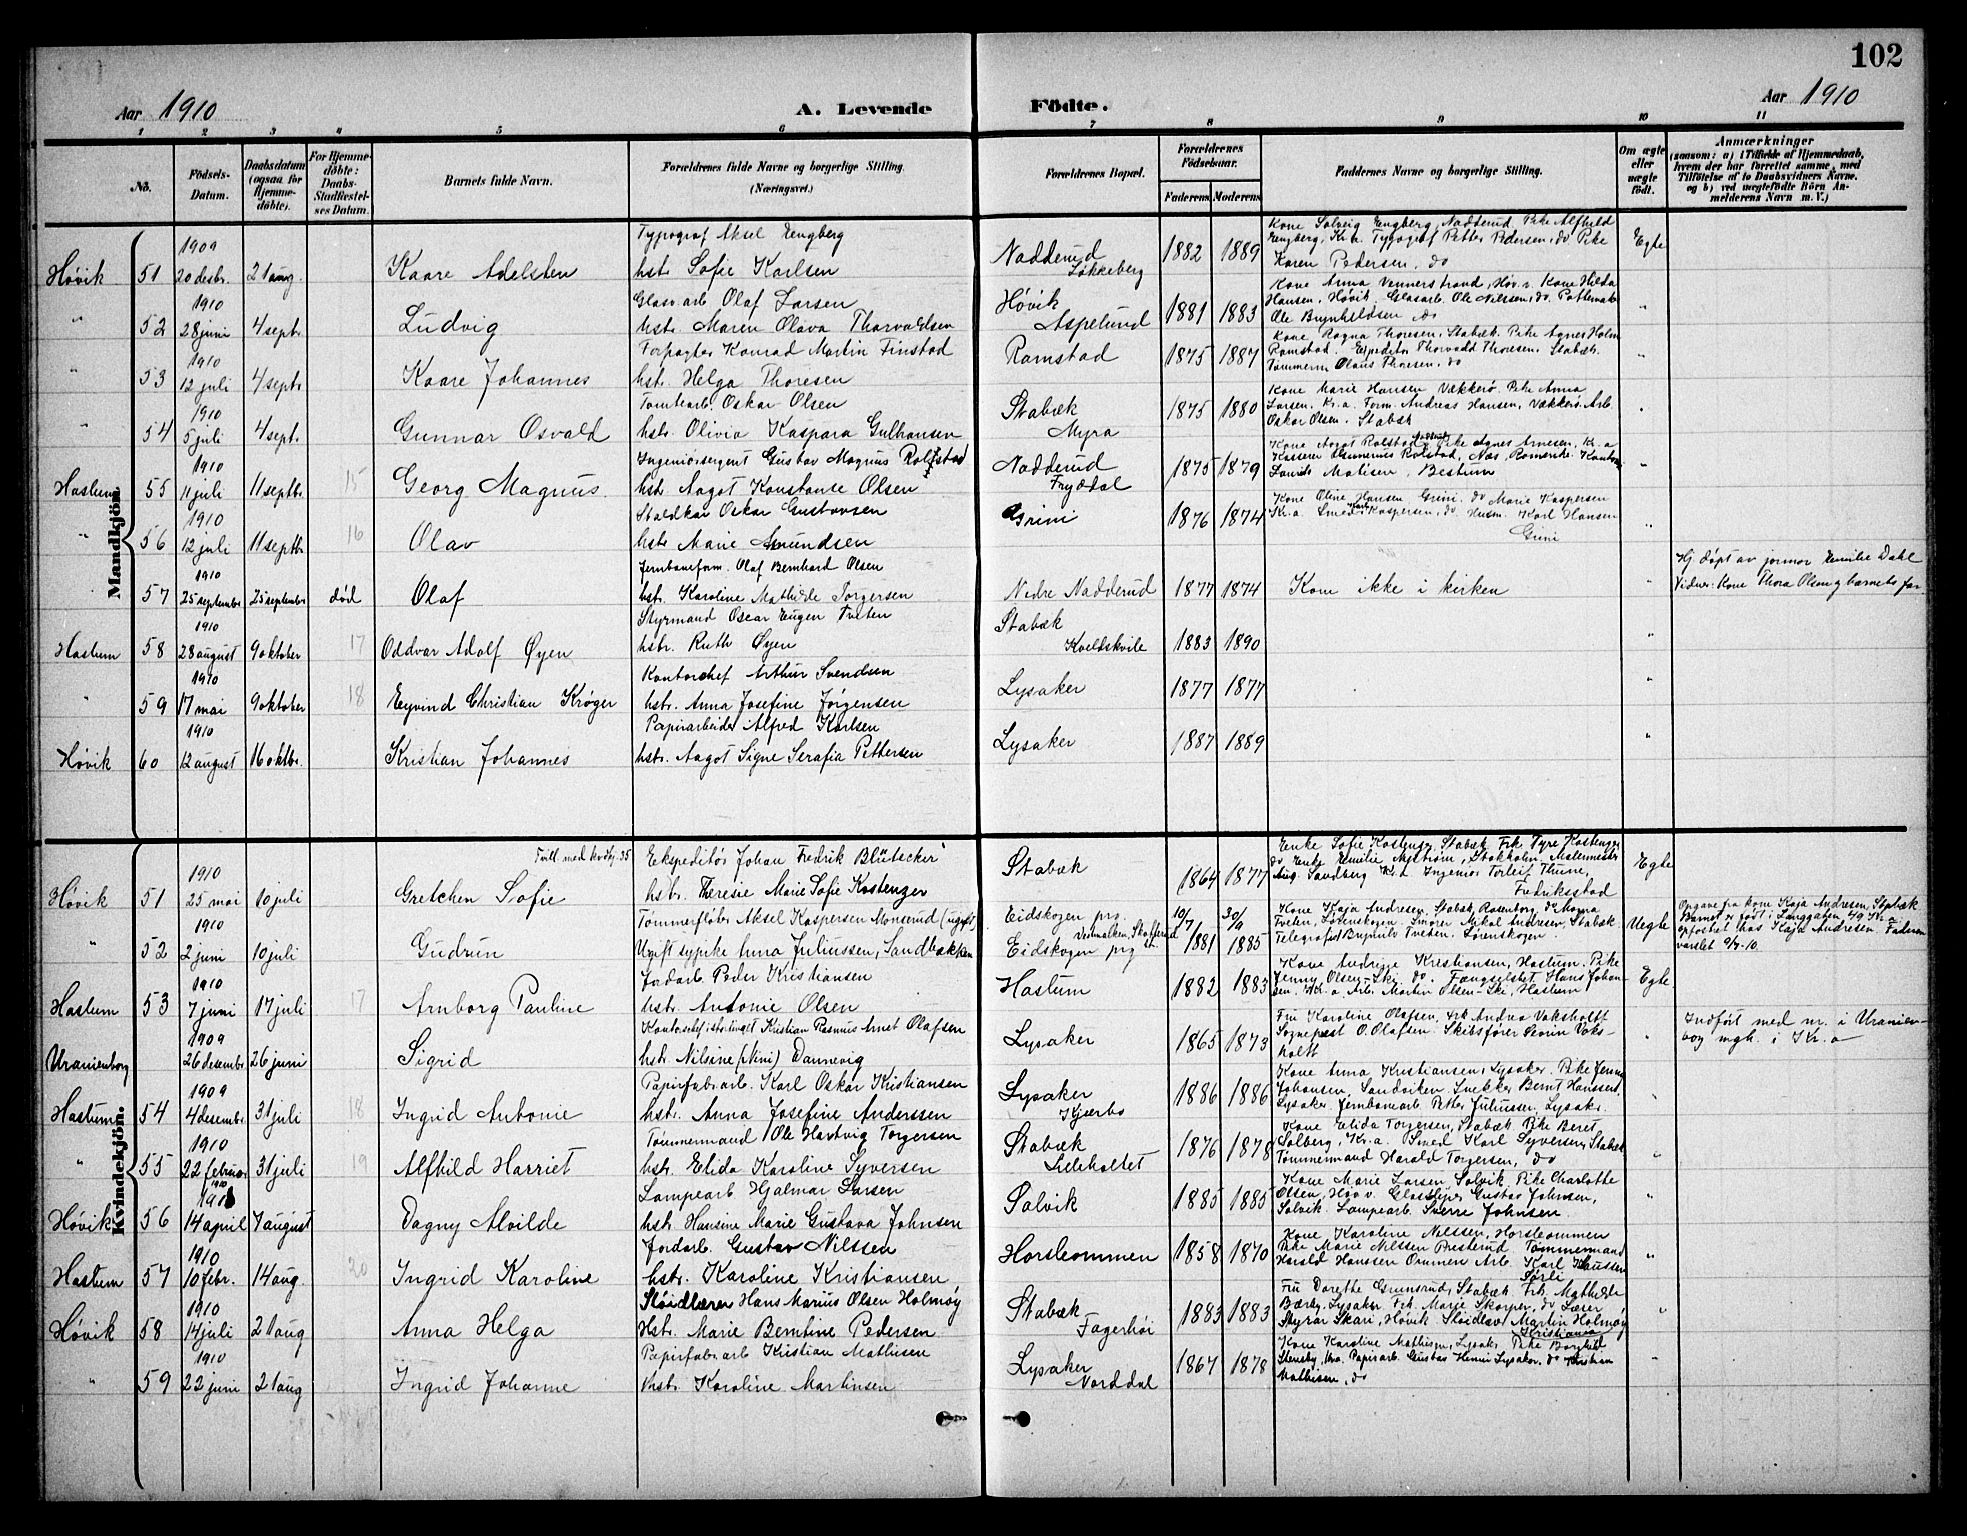 102
Aar 1910
A. Levende
Födte.
Aar 1910
1 2 3 4 5 6 7 8 9 10 11
No.
Födsels-Datum.
Daabsdatum (ogsaa for Hjemme-döbte).
For Hjemme-döbte: Daabs-Stadfæstel-ses Datum.
Barnets fulde Navn.
Forældrenes fulde Navne og borgerlige Stilling. (Næringsvei.)
Forældrenes Bopæl.
Forældrenes Födselsaar.
Faderens Moderens
Faddernes Navne og borgerlige Stilling.
Om ægte eller uægte födt.
Anmærkninger
(saasom: a) i Tilfælde af Hjemmedaab, hvem der har forrettet samme, med Tilföielse af to Daabsvidners Navne. og b) ved uægtefödte Börn An-melderens Navn m. V.)
Mandkjön.
Høvik 51 1909 20 desbr. 21 aug. Kaare Adelsten
Typograf Aksel Engberg
hstr. Sofie Karlsen
Nadderud Løkkeberg 1882 1889
Kone Solveig Engberg, Nadderud. Pike Alfhild
Engberg, Kr.a. Typograf Petter Pedersen, do Pike
Karen Pedersen, do
Egte
" 52 1910 28 juni 4 septr. Ludvig
Glasv.arb. Olaf Larsen
hstr. Maren Olava Thorvaldsen
Høvik Aspelund 1881 1883
Kone Anna Vennerstrand, Høv.v. Kone Hilda
Hansen, Høvik. Glasarb. Ole Nilsen, do.
Ole Brynhildsen do
"
" 53 1910 12 juli 4 septr. Kaare Johannes
Forpagter Konrad Martin Finstad
hstr. Helga Thoresen
Ramstad 1875 1887
Kone Ragna Thoresen, Stabæk. Pike Agnes Holm
Ramstad. Expeditør Thorvald Thoresen, Stabæk.
Tømmerm. Olaus Thoresen, do
"
" 54 1910 5 juli 4 septr. Gunnar Osvald
Tomtearb. Oskar Olsen
hstr. Olivia Kaspara Gulhansen
Stabæk Myra 1875 1880
Kone Marie Hansen Vækkerø. Pike Anna
Larsen, Kr.a. Form. Andreas Hansen, Vækkerø. Arb.
Oskar Olsen, Stabæk
"
Haslum 55 1910 11 juli 11 septbr. 15 Georg Magnus
Ingeniørsergent Gustav Magnus Rolfstad
hstr. Aagot Konstanse Olsen
Nadderud Fryddal 1875 1879
Kone Aagot Rolstad, Pike Agnes Arnesen, Kr.a
Rolstad, Næs, Romerike.
Laurits Matisen, Bestum
"
" 56 1910 12 juli 11 septbr. 16 Olav
Staldkar Oskar Gustavsen
hstr. Marie Amundsen
Grini 1876 1874
Kone Oline Hansen Grini. do Marie Kaspersen
Kr.a. Smed Karl Kaspersen, do. Husm. Karl Hansen
Grini
"
57 1910 25 september 25 september død Olaf
Jernbaneform. Olaf Bernhard Olsen
hstr. Karoline Mathilde Torgersen
Nedre Nadderud 1877 1874
Kom ikke i kirken
"
Hj. døpt av jormor Emilie Dahl
Vidner: Kone Thora Olsen og barnets far
Haslum 58 1910 28 august 9 oktober 17 Oddvar Adolf Øyen
Styrmand Oscar Eugen Tveten
hstr. Ruth Øyen
Stabæk Kveldskvile 1883 1890
"
" 59 1910 17 mai 9 oktober 18 Eyvind Christian Krøger
Kontorchef Arthur Svendsen
hstr. Anna Josefine Jørgensen
Lysaker 1877 1877
"
Høvik 60 1910 12 august 16 oktbr. Kristian Johannes
Papirarbeider Alfred Karlsen
hstr. Aagot Signe Serafia Pettersen
Lysaker 1887 1889
"
Kvindekjön.
Høvik 51 1910 25 mai 10 juli Gretchen Sofie
Tvill. med 35
Ekspeditør Johan Fredrik Blütecker
hstr. Therese Marie Sofie Kostenzer
Stabæk 1864 1877
Enke Sofie Kostenzer, Stabæk. Frk. Tyre Kostenzer
do Enke Emilie Nystrøm, Stokholm. Malermester
Aug. Sandberg Kr.a. Ingeniør Torleif Thune,
Fredriksstad
Egte
" 52 1910 2 juni 10 juli Gudrun
Tømmerfløter Aksel Kaspersen Monserud (ugift)
Ugift sypike Anna Juliussen, Sandbakken
Eidskogen prg.
Eidskogen prg. 10/7 1881 30/9 1885
Kone Kaja Andresen, Stabæk, Rosenborg. do Magna
Tveten, Lørenskogen. Smører Mikal Andresen, Stabæk
Telegrafist Brynjulv Tveten, Lørenskogen.
Uegte
Opgave fra kone Kaja Andresen, Stabæk
Barnet er født i Langgaten 49 Kr.a.
opfostret hos Kaja Andresen. Faderen
varslet 9/7-10.
Haslum 53 1910 7 juni 17 juli 17 Arnborg Pauline
Jordarb. Peder Kristiansen
hstr. Antonie Olsen
Haslum 1882 1883
Kone Andrine Kristiansen, Haslum. Pike
Jenny Olsen-Ski, do. Fængselsbet. Hans Johan-
sen. Kr.a Arb. Martin Olsen-Ski, Haslum
Egte
Uranienborg 1909 26 desember 26 juni Sigrid
Kontorchef i stortinget Kristian Rasmus Arnet Olafsen
hstr. Nilsine (Nini) Dannevig
Lysaker 1865 1873
Fru Karoline Olafsen, Frk. Andrea Vaksholtt
Sogneprest O. Olafsen. Skibsfører Severin Voks-
holtt
"
Indført med nr. i Uranien-
borg mgh. i Kr.a
Haslum 54 1909 4 desembr. 31 juli 18 Ingrid Antonie
Papirfabr.arb. Karl Oskar Kristiansen
hstr. Anna Josefine Anderssen
Lysaker Kjærbo 1886 1886
Kone Anna Kristiansen, Lysaker. Pike Jenny
Johansen, Sandviken. Snekker Bernt Hanssen,
Lysaker. Jernbanearb. Petter Juliussen, Lysaker.
"
" 55 1910 22 februar 31 juli 19 Alfhild Harriet
Tømmermand Ole Hartvig Torgersen
hstr. Elida Karoline Syversen
Stabæk Lileholtet 1876 1878
Kone Elida Torgersen, Stabæk Pike Beret
Solberg, Kr.a. Smed Karl Syversen, Stabæk
Tømmermand Harald Torgersen, do
"
Høvik 56 1910 14 april 7 august Dagny Alvilde
Lampearb. Hjalmar Larsen
hstr. Hansine Marie Gustava Johnsen
Solvik 1885 1885
Kone Marie Larsen, Solvik, Pike Charlotte
Olsen, Høv.v. Glassliper Gustav Johnsen,
Solvik. Lampearb. Sverre Johnsen.
"
Haslum 57 1910 10 febr. 14 aug. 20 Ingrid Karoline
Jordarb. Gustav Nilssen
hstr. Karoline Kristiansen
Horsleommen 1858 1870
Kone Karoline Nilssen, Horsleommen
Pike Marie Nilssen Presterud Tømmermand
Harald Hanssen Ommen Arb. Karl Klaussen
Sørli
"
Høvik 58 1910 14 juli 21 aug Anna Helga
Sløidlærer Hans Marius Olsen Holmøy
Hstr. Marie Berntine Pedersen
Stabæk Fagerhøi 1883 1883
Fru Dorette Grimsrud, Stabæk. Frk. Mathilde
Bærby, Lysaker Frk. Marie Skorper, do Lærer
Styrar Skari, Høvik Sløidlær. Martin Holmøy
Kristiania
"
" 59 1910 22 juni 21 aug Ingrid Johanne
Papirfabr.arb Kristian Mathisen
hstr. Karoline Martinsen
Lysaker Norddal 1867 1878
Kone Karoline Mathisen, Lysaker Pike Borghild
Stensby, Papirarb. Gustav Lysaker. do Kristian
Mathisen, do
"